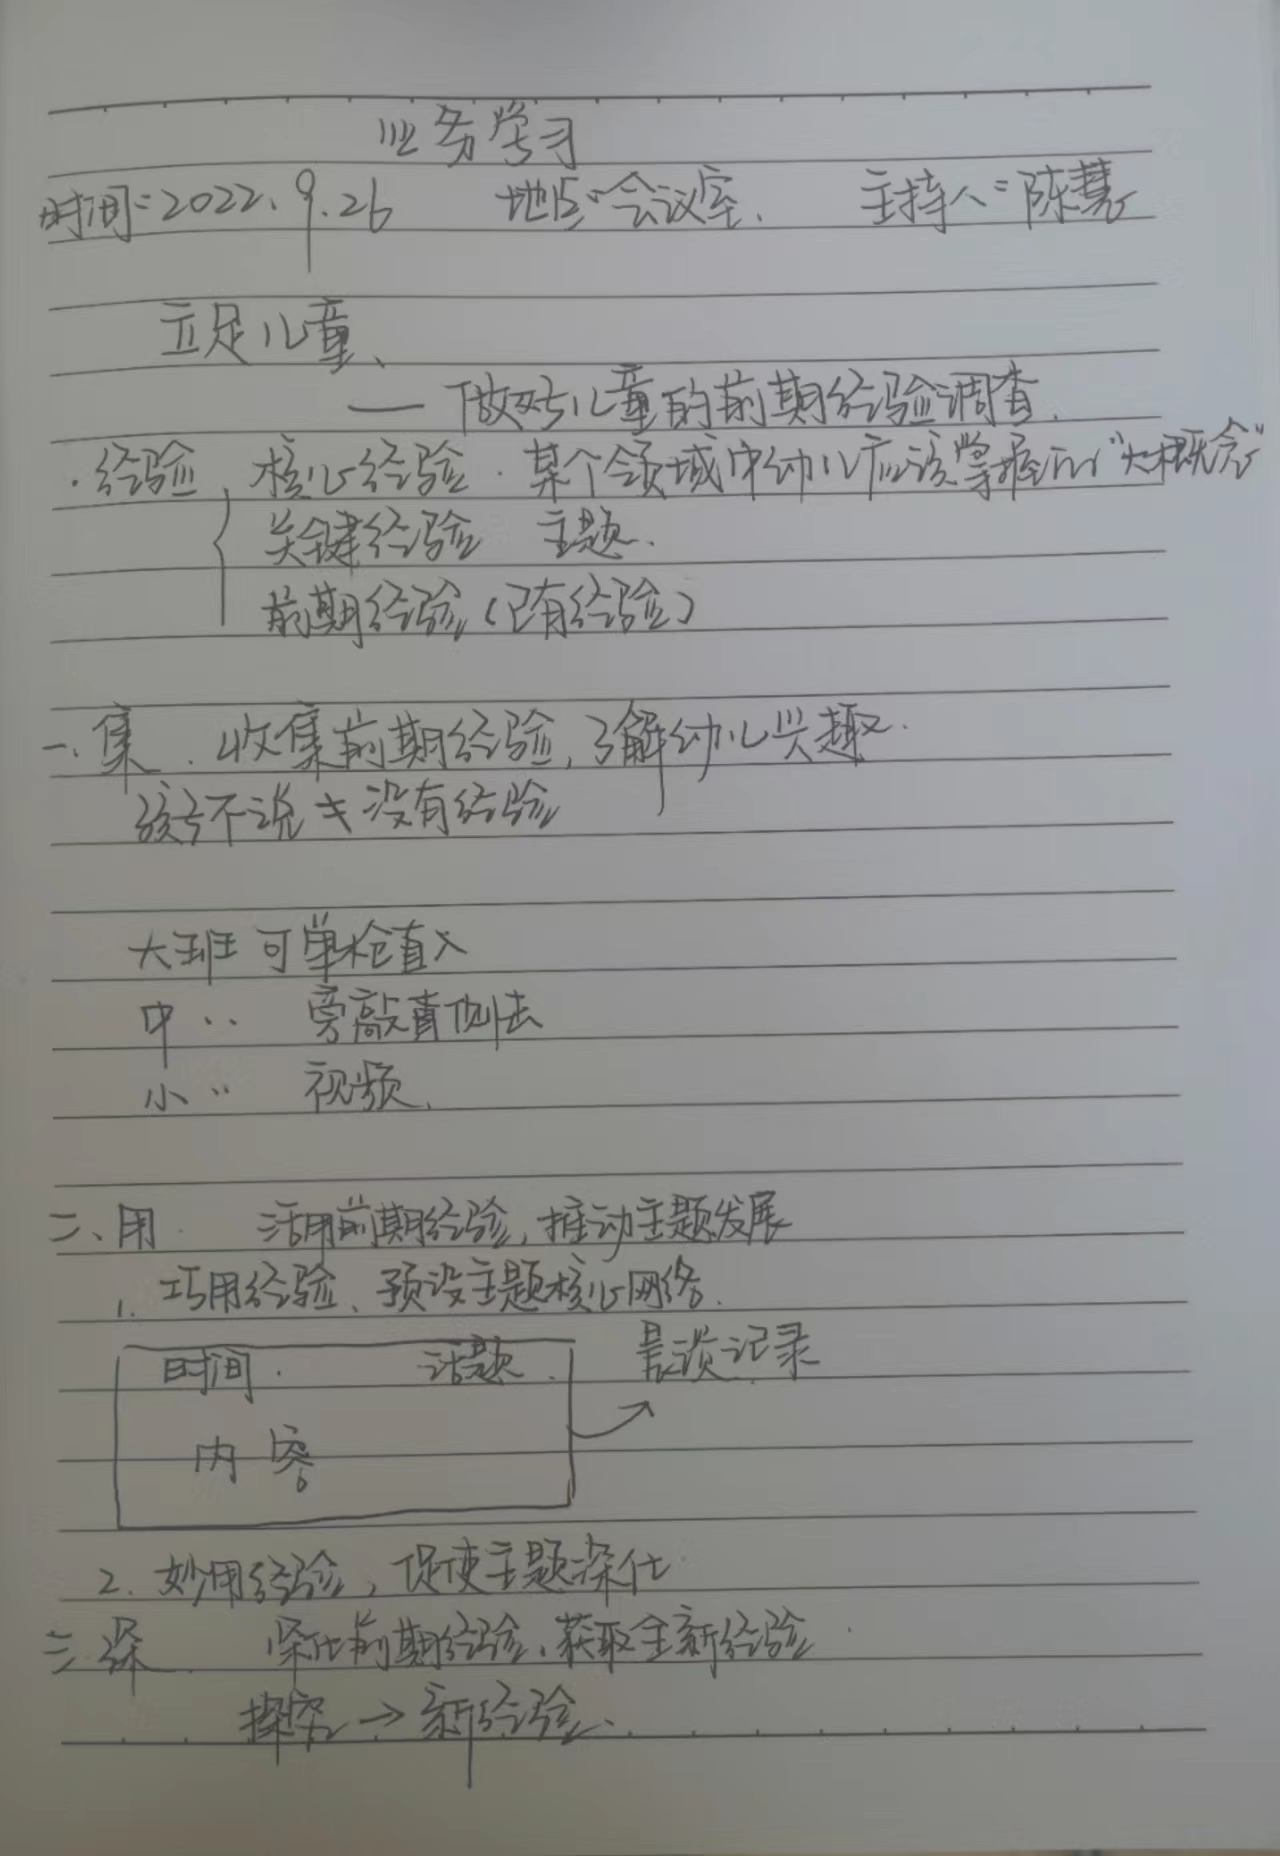 业务学习
时间:2022.9.26 地点:会议室. 主持人:陈慧
立足儿童、
——做好儿童的前期经验调查.
·经验 核心经验·某个领域中幼儿应该掌握的"大概念"
关键经验 主题.
前期经验(已有经验)
一.集. 收集前期经验,了解幼儿兴趣.
孩子不说 没有经验
大班 可单枪直入
中 〃 旁敲责侧去
小 〃 视频.
二、用. 活用前期经验,推动主题发展
1. 巧用经验、预设主题核心网络.
时间. 话题.
晨谈记录
内容
2. 妙用经验,促使主题深化
三.深. 深化前期经验、获取全新经验.
探究→新经验.